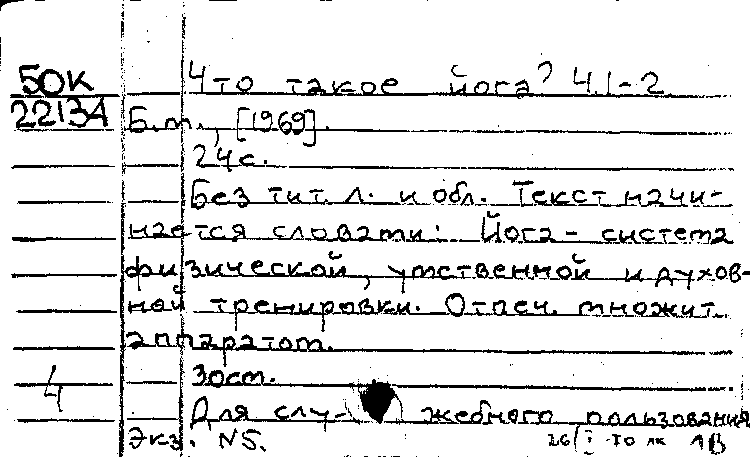 50К Что такое йога? Ч.1-2
22134 Б.м., [1969].
24с.
Без тит. л. и обл. Текст начи-
нается словами: Йога - система
физической, умственной и духов-
ной тренировки. Отпеч. множит.
аппаратом.
4 30эт.
Для слу- жебного пользования
Экз. N5.